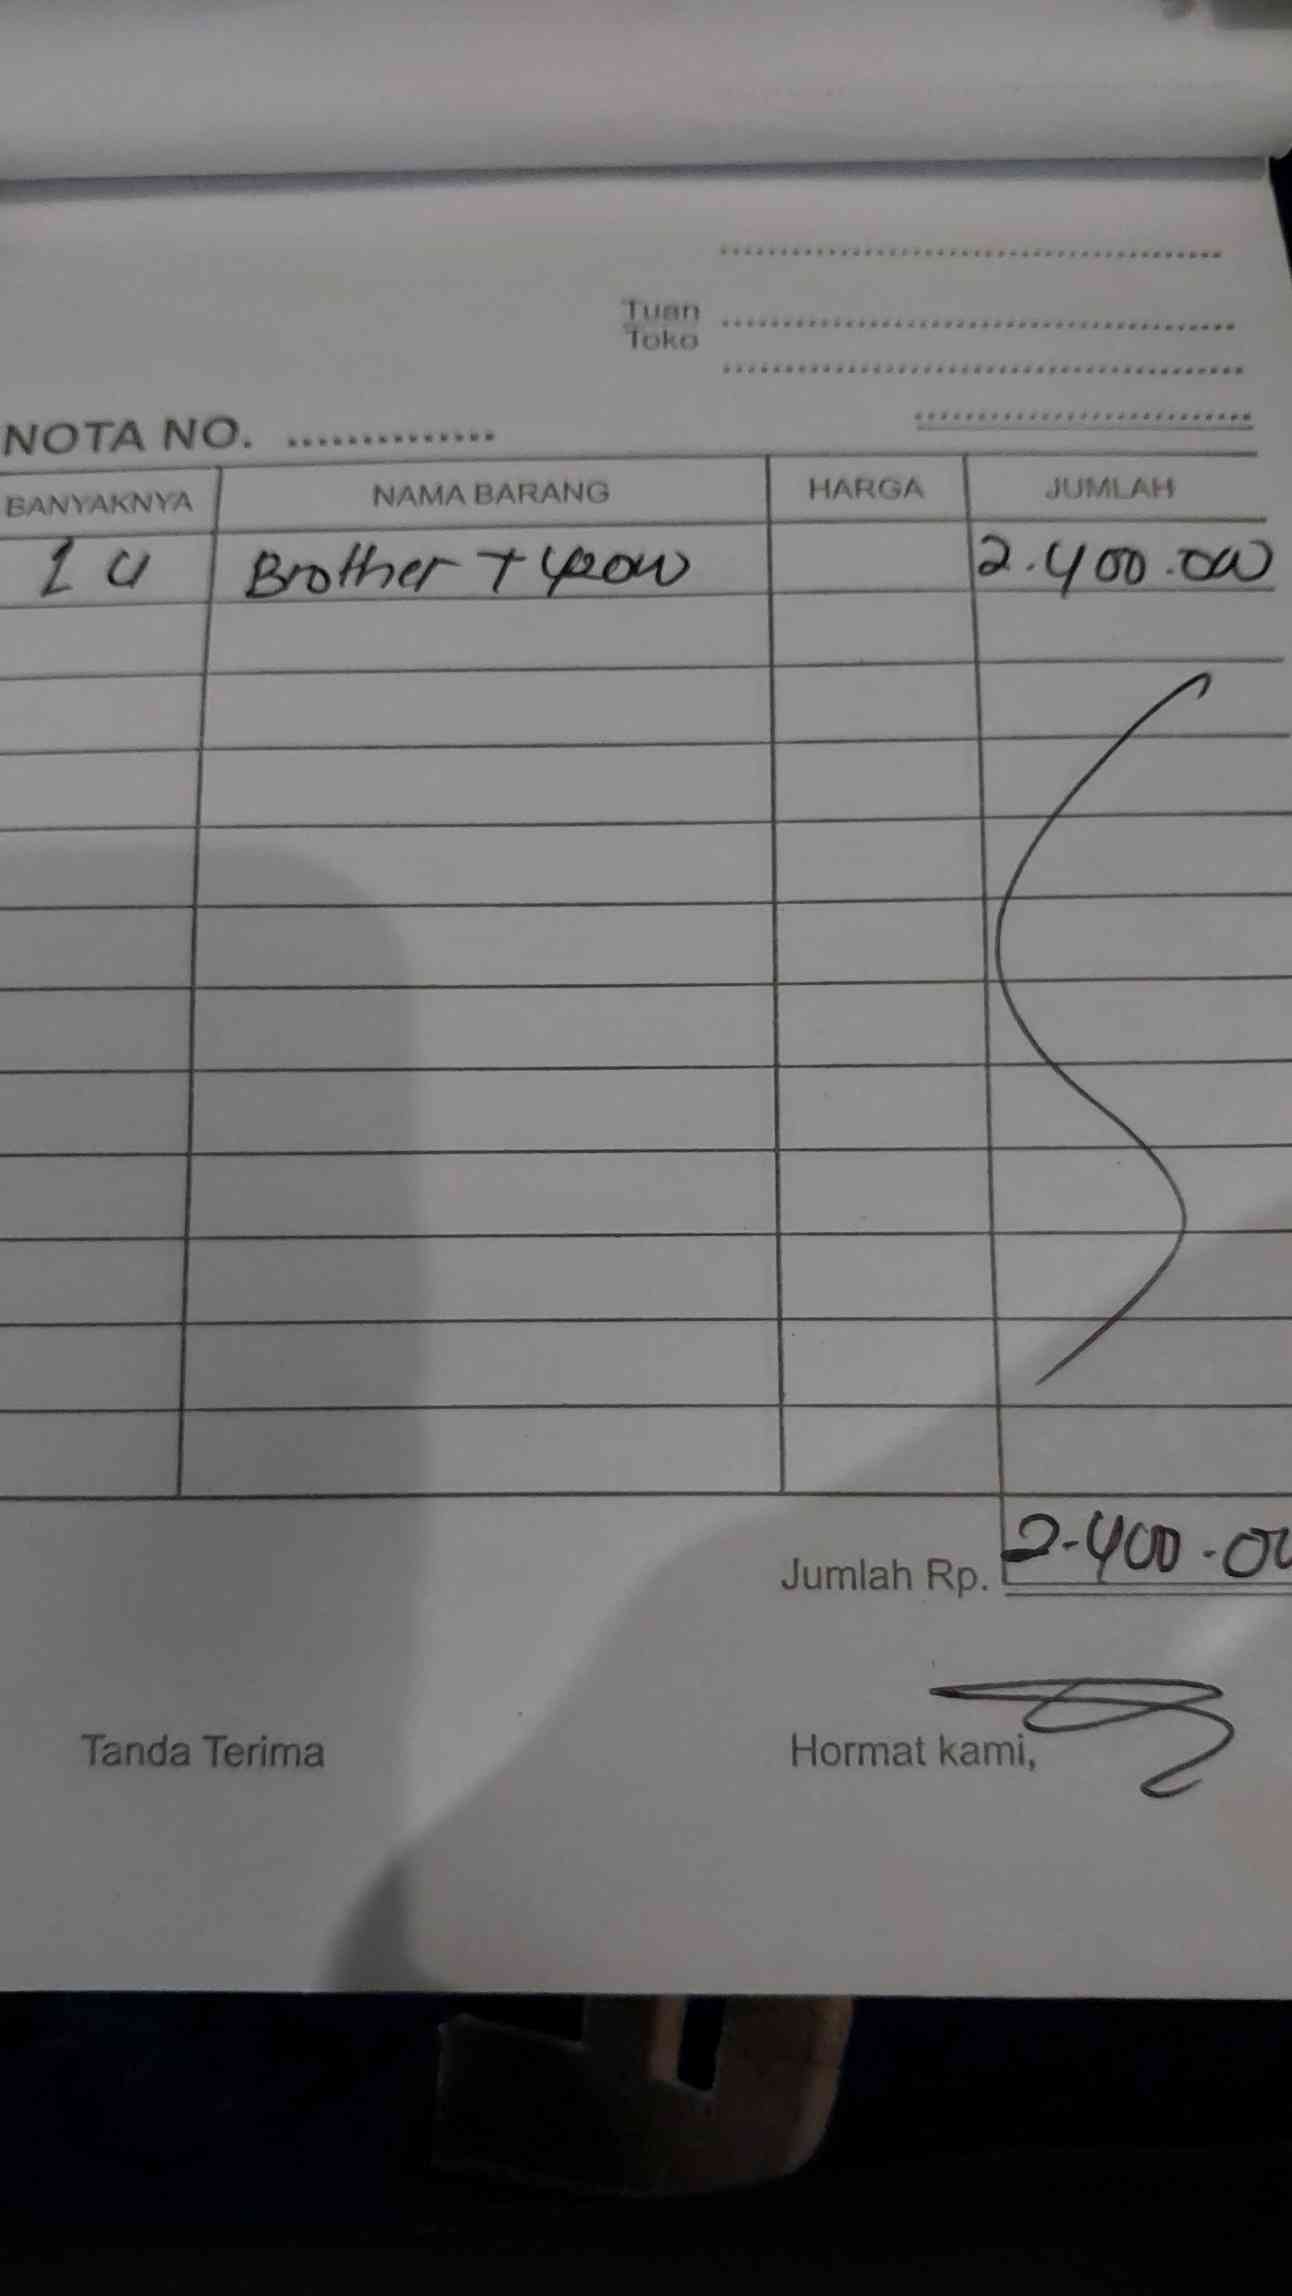 Tuan
Toko
NOTA NO. ..............
BANYAKNYA NAMA BARANG HARGA JUMLAH
1 U Brother T420W 2.400.000
Jumlah Rp. 2.400.00
Tanda Terima Hormat kami,